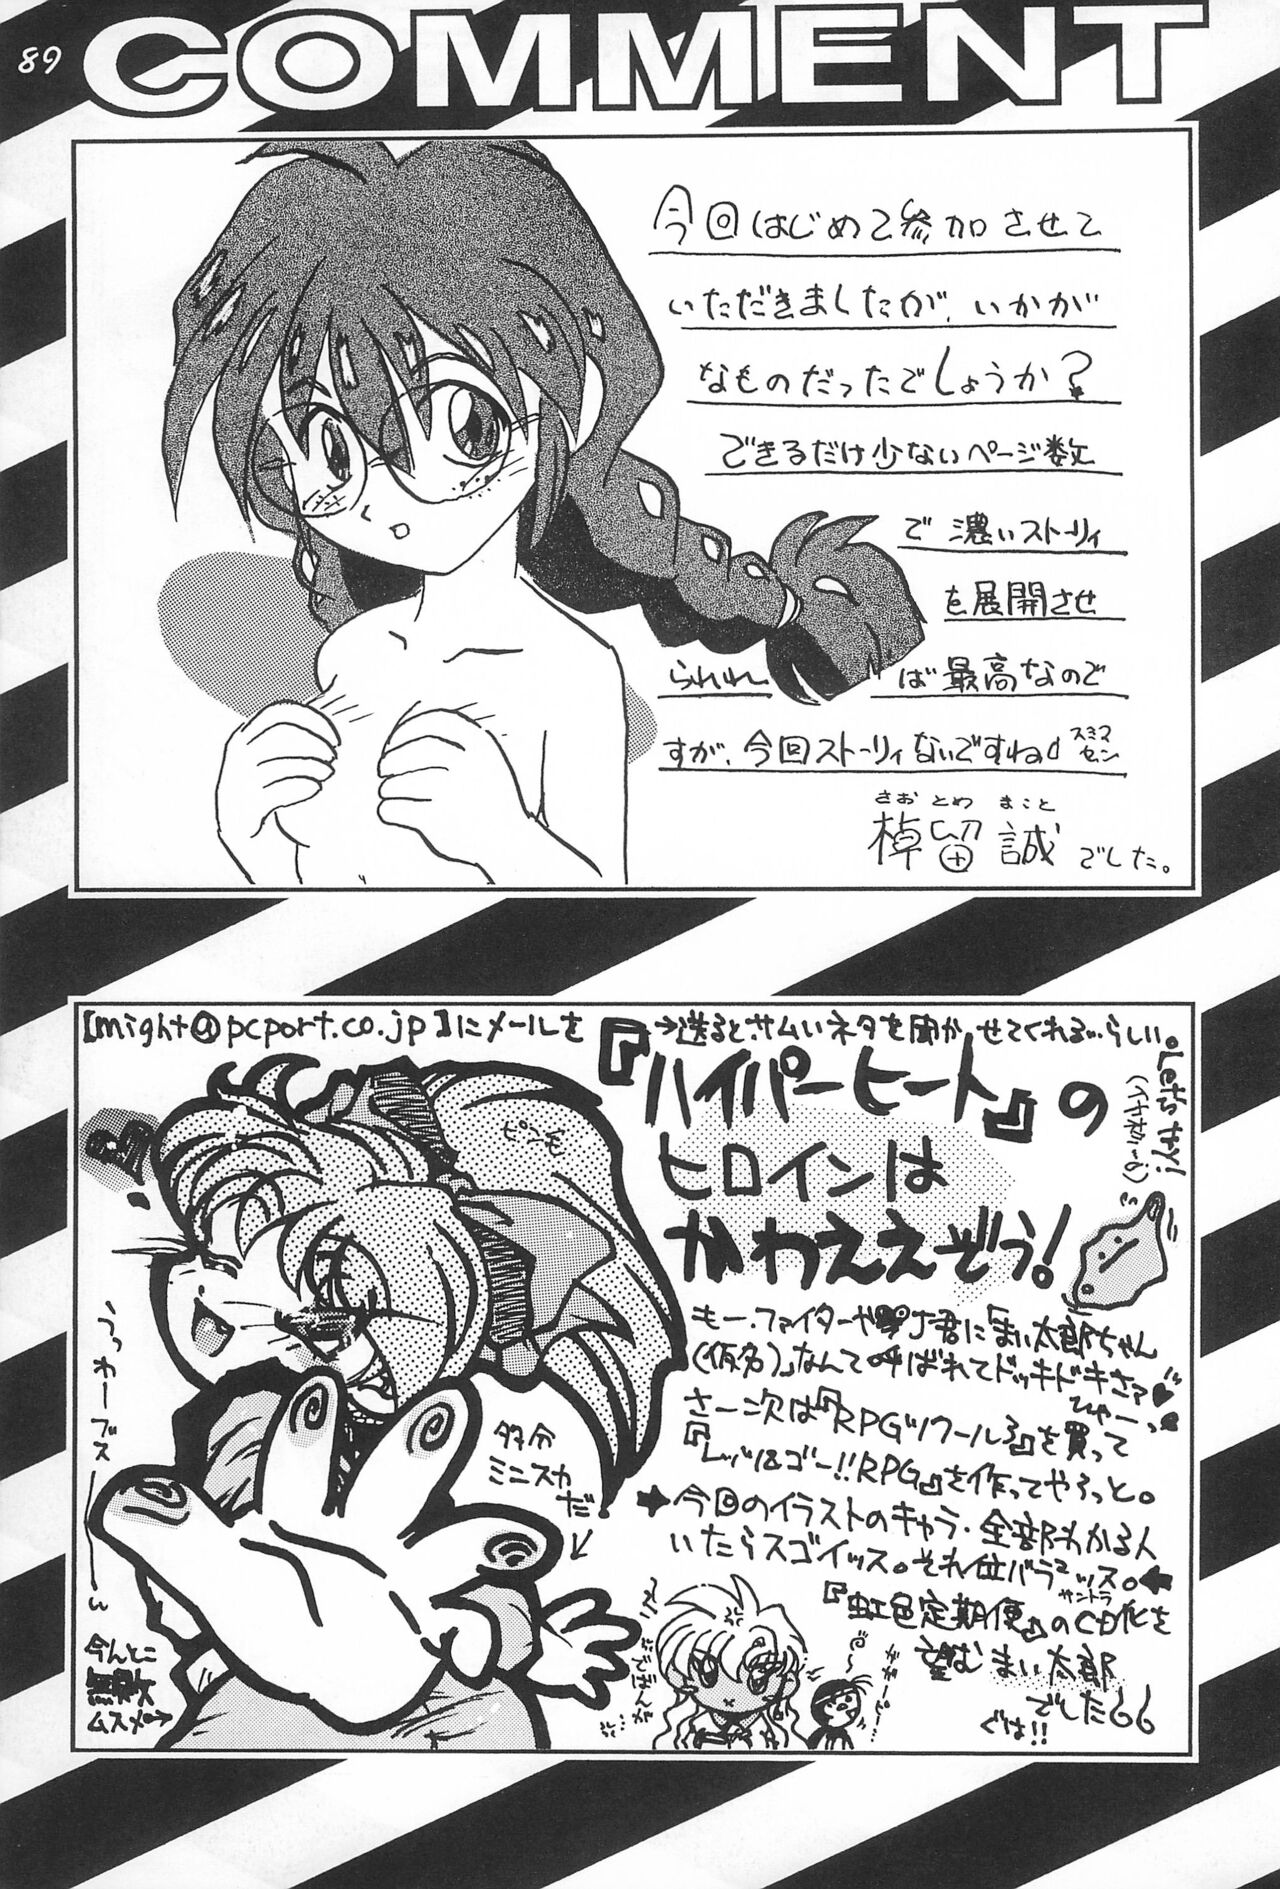 89
COMMENT
今回はじめて参加させて
いただきましたが、いかが
なものだったでしょうか?
できるだけ少ないページ数
で濃いストーリィ
を展開させ
られれば最高なので
すが、今回ストーリィないですねd スミマセン
さおとめ まこと
棹留 誠 でした。
[might@pcport.co.jp]にメールを
→送るとサムいネタを聞かせてくれる…らしい。
Let's try!
『ハイパーヒート』の
ヒロインは
かわええぞう!
もー、ファイターや J君に「まい太郎ちゃん
(仮名)」なんて呼ばれてドッキドキさァ♥
ひゃーっ
さー次は『RPGツクール3』を買って
『レッツ&ゴー!!RPG』を作ってやろっと。
今回のイラストのキャラ・全部わかる人
いたらスゴイッス。それ位バラバラッス。
サントラ
『虹色定期便』のCD化を
望むまい太郎
でした66
では!!
ピンも
うっわーブスーーん
多分
ミニスカ
だ!
今んとこ
無敵
ムスメ→